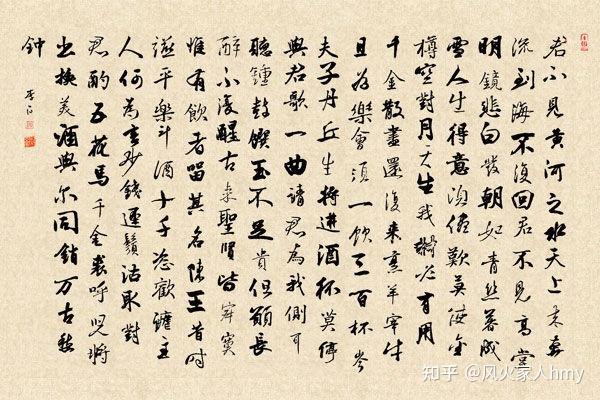 君不見黃河之水天上來奔
流到海不復回君不見高堂
明鏡悲白髮朝如青絲暮成
雪人生得意須盡歡莫使金
樽空對月天生我材必有用
千金散盡還復來烹羊宰牛
且為樂會須一飲三百杯岑
夫子丹丘生將進酒杯莫停
與君歌一曲請君為我側耳
聽鍾鼓饌玉不足貴但願長
醉不復醒古來聖賢皆寂寞
惟有飲者留其名陳王昔時
讌平樂斗酒十千恣歡謔主
人何為言少錢逕鬚沽取對
君酌五花馬千金裘呼兒將
出換美酒與爾同銷万古愁
钟
知乎 @风火家人hmy